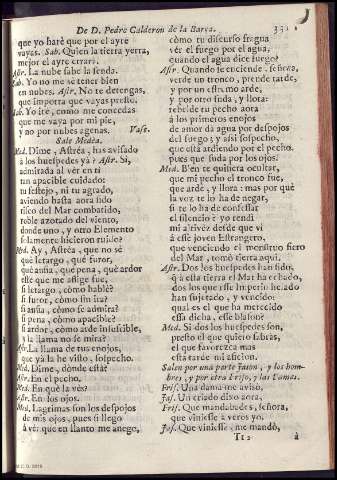 De D. Pedro Calderon de la Barca. 331
que yo harè que por el ayre
vayas. Sab. Quien la tierra yerra,
mejor el ayre errarà.
Astr. La nube sabe la senda.
Sab. Yo no me sè tener bien
en nubes. Astr. No te detengas,
que importa que vayas presto.
Sab. Yo irè, como me concedas
que me vaya por mi pie,
y no por nubes agenas. Vase.
Sale Medea.
Med. Dime, Astrèa, has avisado
à los huespedes yà? Astr. Sì,
admirada al vèr en tì
tan apacible cuidado:
tu festejo, ni tu agrado,
aviendo hasta aora sido
risco del Mar combatido,
roble azotado del viento,
donde uno, y otro Elemento
solamente hicieron ruido?
Med. Ay, Astrèa, que no sè
què letargo, què furor,
què ansia, què pena, què ardor
esse que me aflige fue,
si letargo, còmo hablè?
si furor, còmo sufria?
si ansia, còmo se admira?
si pena, còmo apacible?
si ardor, còmo arde insufrible,
y la llama no se mira?
Astr. La llama de tus enojos,
que yà la he visto, sospecho.
Med. Dime, dònde està?
Astr. En el pecho.
Med. En què la vès?
Astr. En los ojos.
Med. Lagrimas son los despojos
de mis ojos, pues si llego
à vèr que en llanto me anego,
còmo tu discurso fragua
vèr el fuego por el agua,
quando el agua dice fuego?
Astr. Quando se enciende, señora,
verde un tronco, prende tarde,
y por un estremo arde,
y por otro suda, y llora:
rebelde tu pecho aora
à los primeros enojos
de amor dà agua por despojos
del fuego; y assi sospecho,
que està ardiendo por el pecho,
pues que suda por los ojos.
Med. Bien te quisiera ocultar,
que mi pecho el tronco fue,
que arde, y llora: mas por què
la voz te lo ha de negar,
si te lo ha de confessar
el silencio? yo rendì
mi altivèz desde que vì
à esse joven Estrangero,
que venciendo el monstruo fiero
del Mar, tomò tierra aqui.
Astr. Dos los huespedes han sido,
q̃ à esta tierra el Mar ha echado,
dos los que esse Imperio helado
han sujetado, y vencido:
qual es el que ha merecido
essa dicha, esse blason?
Med. Si dos los huespedes son,
presto el que quiero sabràs,
el que favorezca mas
esta tarde mi aficion.
Salen por una parte Jason, y los hombres,
y por otra Frixo, y las Damas.
Frix. Una dama me avisò,
Jas. Un criado dixo aora,
Frix. Que mandabades, señora,
que viniesse à veros yo.
Jas. Que viniesse, me mandò,
Tt 2 à